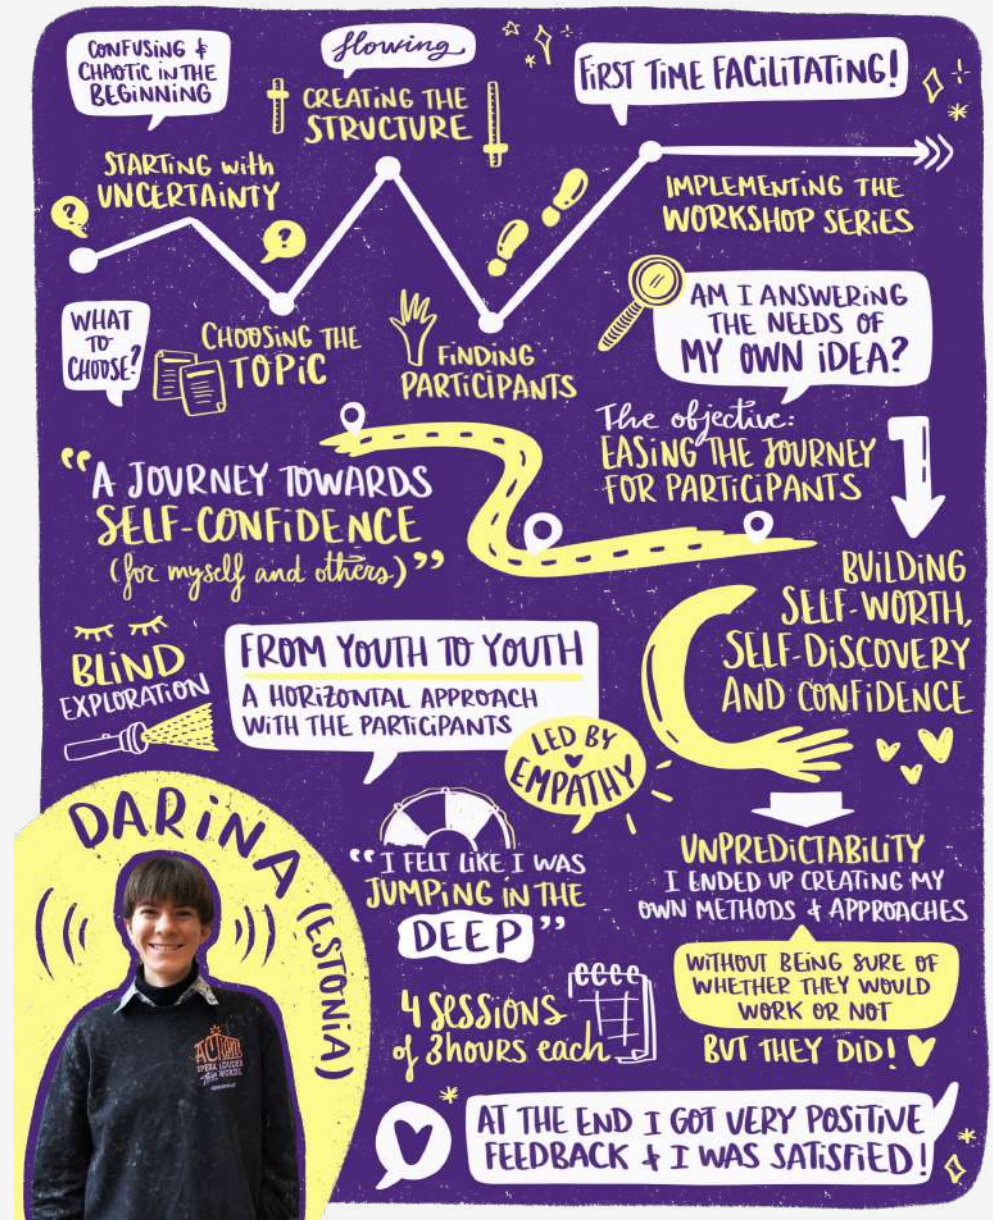 CONFUSING &
CHAOTIC IN THE
BEGINNING
flowing
FIRST TIME FACILITATING!
CREATING THE
STRUCTURE
STARTING with
UNCERTAINTY
?
?
IMPLEMENTING THE
WORKSHOP SERIES
WHAT
TO
CHOOSE?
CHOOSING THE
TOPIC
FINDING
PARTICIPANTS
AM I ANSWERING
THE NEEDS OF
MY OWN IDEA?
The objective:
EASING THE JOURNEY
FOR PARTICIPANTS
"A JOURNEY TOWARDS
SELF-CONFIDENCE
(for myself and others)"
BUILDING
SELF-WORTH,
SELF-DISCOVERY
AND CONFIDENCE
BLIND
EXPLORATION
FROM YOUTH TO YOUTH
A HORIZONTAL APPROACH
WITH THE PARTICIPANTS
LED BY
EMPATHY
"I FELT LIKE I WAS
JUMPING IN THE
DEEP"
UNPREDICTABILITY
I ENDED UP CREATING MY
OWN METHODS & APPROACHES
WITHOUT BEING SURE OF
WHETHER THEY WOULD
WORK OR NOT
BUT THEY DID!
4 SESSIONS
of 3 hours each
DARINA
(ESTONIA)
SPEAK LOUDER
WORDS
AT THE END I GOT VERY POSITIVE
FEEDBACK & I WAS SATISFIED!